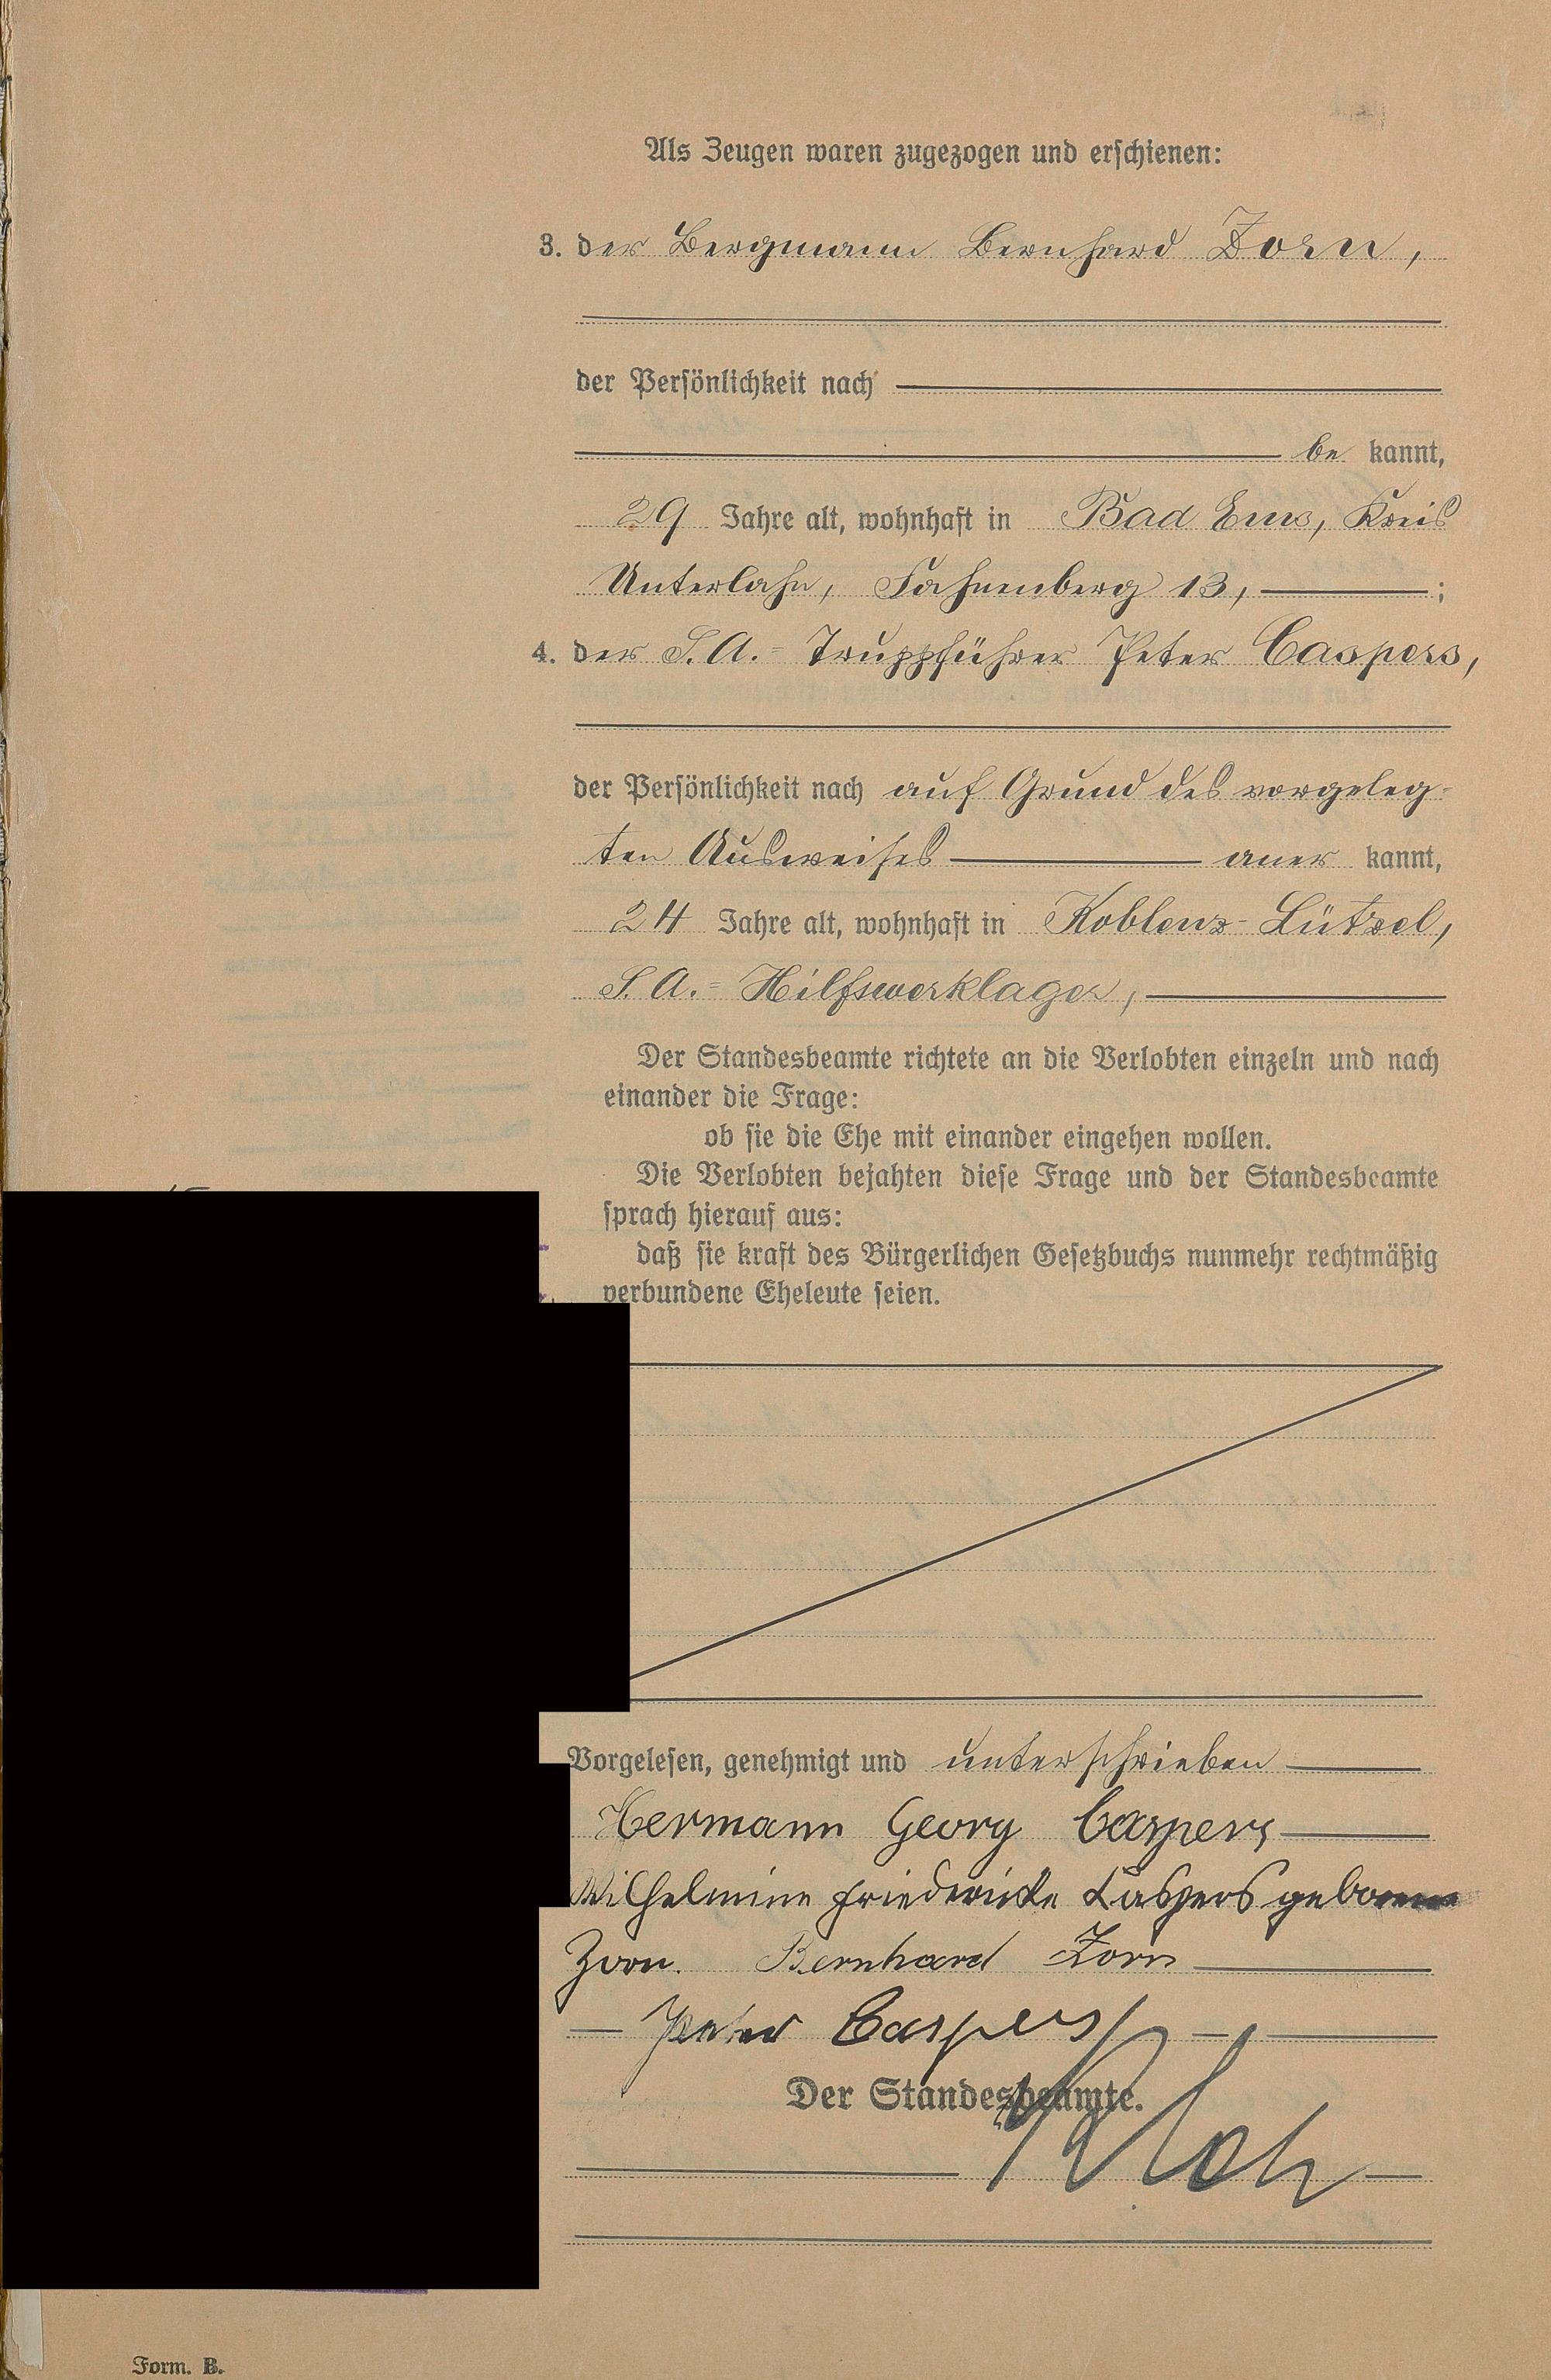 Als Zeugen waren zugezogen und erschienen:
3. der Bergmann Bernhard Zorn,
der Persönlichkeit nach
be kannt,
29 Jahre alt, wohnhaft in Bad Ems, Kreis
Unterlahn, Fahnenberg 13, ;
4. der S.A.=Truppführer Peter Caspers,
der Persönlichkeit nach auf Grund des vorgeleg=
ten Ausweises aner kannt,
24 Jahre alt, wohnhaft in Koblenz-Lützel,
S.A.=Hilfswerklager,
Der Standesbeamte richtete an die Verlobten einzeln und nach
einander die Frage:
ob sie die Ehe mit einander eingehen wollen.
Die Verlobten bejahten diese Frage und der Standesbeamte
sprach hierauf aus:
daß sie kraft des Bürgerlichen Gesetzbuchs nunmehr rechtmäßig
verbundene Eheleute seien.
Vorgelesen, genehmigt und unterschrieben
Hermann Georg Caspers
Wilhelmine Friedericke Caspers geborene
Zorn. Bernhard Zorn
Peter Caspers
Der Standesbeamte.
Form. B.